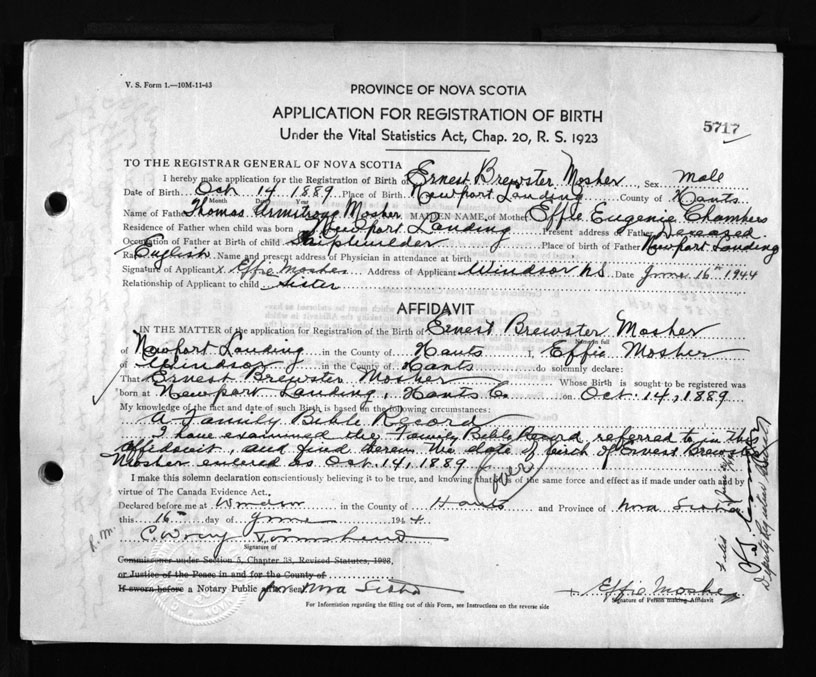 V. S. Form 1.—10M-11-43
PROVINCE OF NOVA SCOTIA
APPLICATION FOR REGISTRATION OF BIRTH
Under the Vital Statistics Act, Chap. 20, R. S. 1923
5717
TO THE REGISTRAR GENERAL OF NOVA SCOTIA
I hereby make application for the Registration of Birth of Ernest Brewster Mosher Sex Male
Date of Birth Oct 14 1889 Place of Birth Newport Landing County of Hants
Month Day Year
Name of Father Thomas Armstrong Mosher MAIDEN NAME of Mother Effie Eugenie Chambers
Residence of Father when child was born Newport Landing Present address of Father Deceased
Occupation of Father at Birth of child Shipbuilder Place of birth of Father Newport Landing
Race English Name and present address of Physician in attendance at birth
Signature of Applicant x Effie Mosher Address of Applicant Windsor N.S. Date June 16th 1944
Relationship of Applicant to child Sister
AFFIDAVIT
IN THE MATTER of the application for Registration of the Birth of Ernest Brewster Mosher
Name in full
of Newport Landing in the County of Hants I, Effie Mosher
of Windsor in the County of Hants do solemnly declare:
That Ernest Brewster Mosher Whose Birth is sought to be registered was
born at Newport Landing, Hants Co. on Oct. 14, 1889
My knowledge of the fact and date of such Birth is based on the following circumstances:
A Family Bible Record
I have examined the Family Bible Record referred to in this
affidavit, and find therein the date of birth of Ernest Brewster
Mosher entered as Oct. 14, 1889
(over)
I make this solemn declaration conscientiously believing it to be true, and knowing that it is of the same force and effect as if made under oath and by
virtue of The Canada Evidence Act.
Declared before me at Windsor in the County of Hants and Province of Nova Scotia
this 16th day of June 1944
Signature of
Commissioner under Section 5, Chapter 38, Revised Statutes, 1923,
or Justice of the Peace in and for the County of
If sworn before a Notary Public affix seal for Nova Scotia
Effie Mosher
Signature of Person making Affidavit
For Information regarding the filling out of this Form, see Instructions on the reverse side
Deputy Registrar General